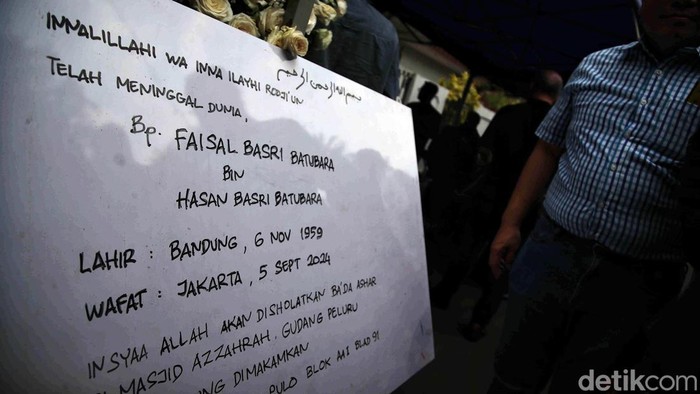 INNALILLAHI WA INNA ILAYHI RODJI'UN
بسم الله الرحمن الرحيم
TELAH MENINGGAL DUNIA,
Bp. FAISAL BASRI BATUBARA
BIN
HASAN BASRI BATUBARA
LAHIR : BANDUNG, 6 NOV 1959
WAFAT : JAKARTA, 5 SEPT 2024
INSYAA ALLAH AKAN DISHOLATKAN BA'DA ASHAR
MASJID AZZAHRAH. GUDANG PELURU
DIMAKAMKAN
PULO BLOK AA1 BLAD 91
detikcom